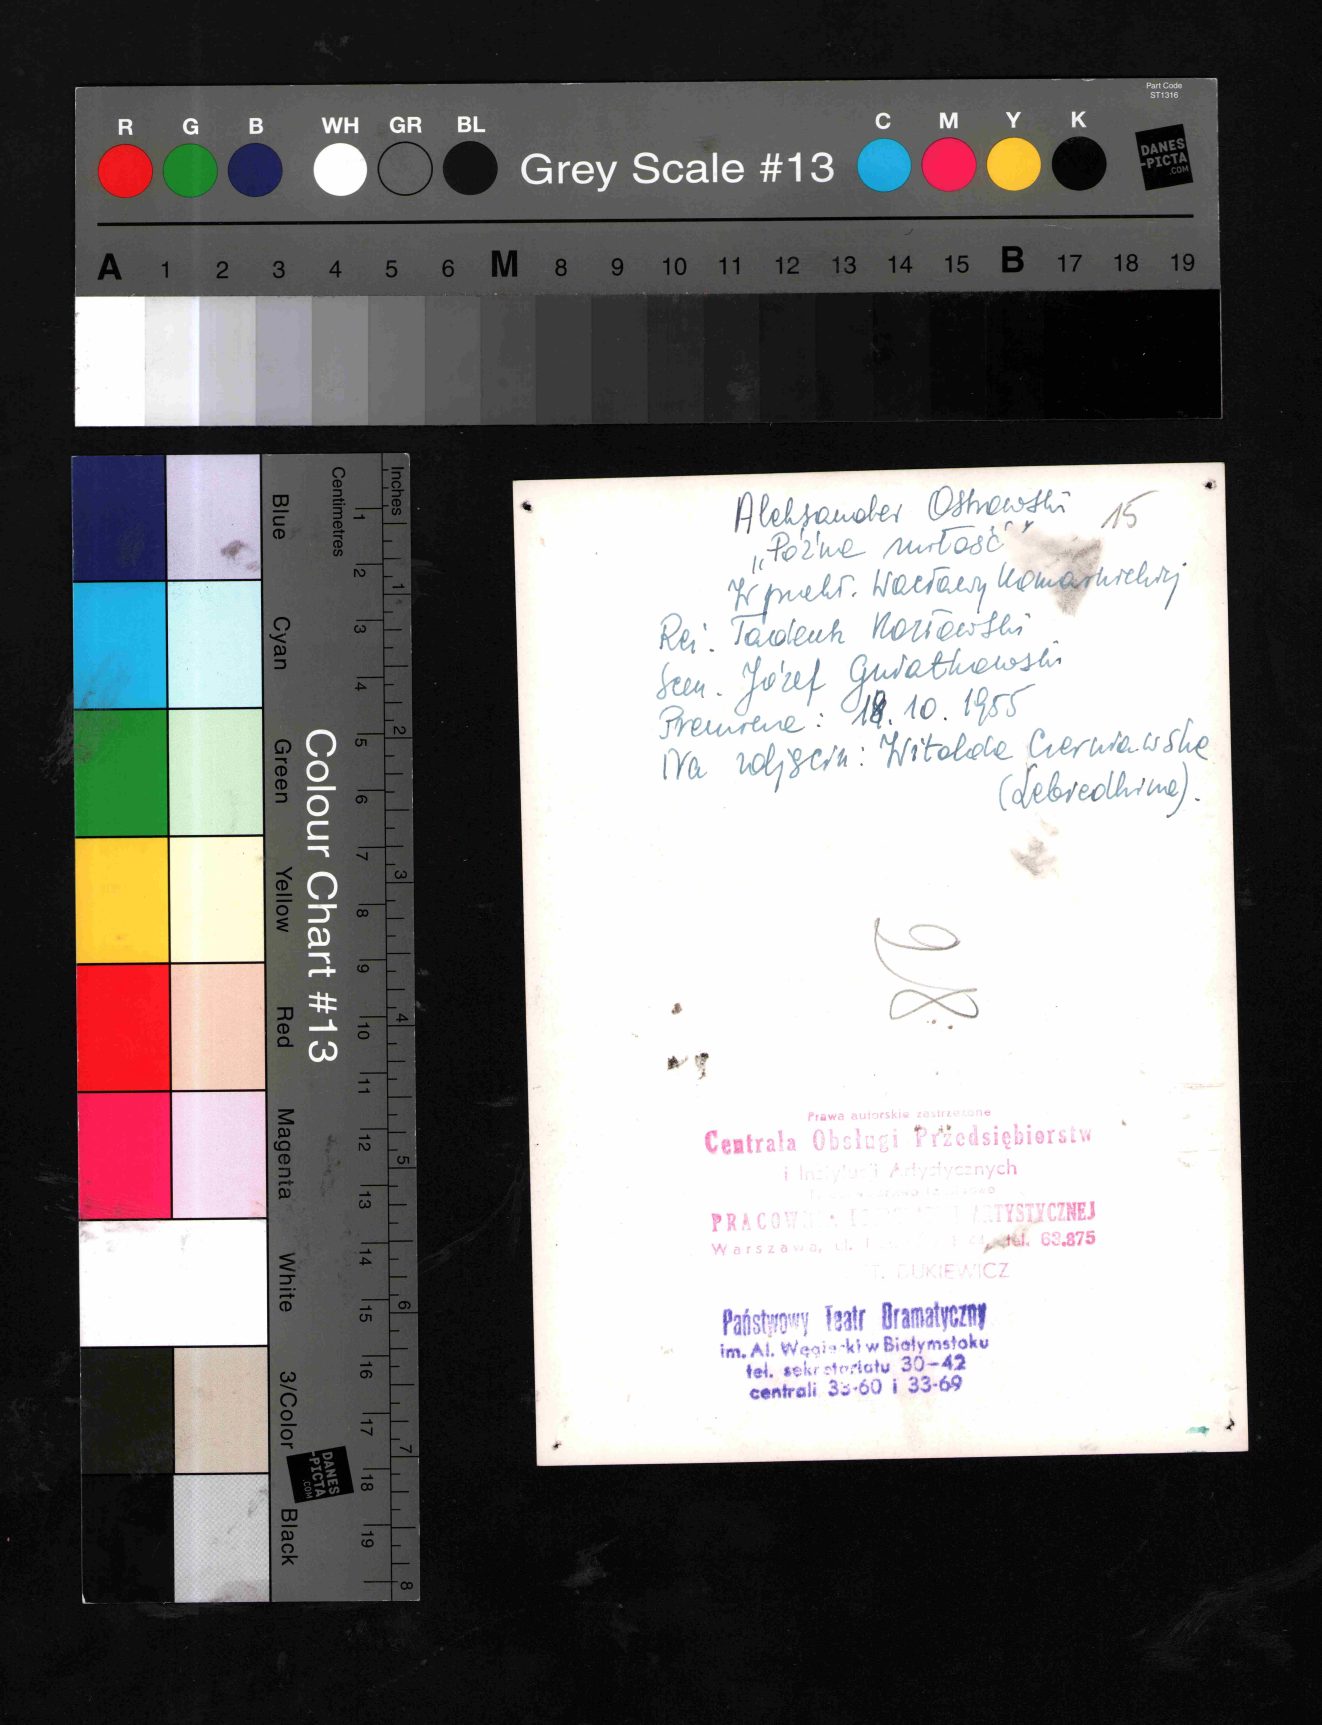 Part Code
ST1316
R G B WH GR BL Grey Scale #13 C M Y K
DANES
-PICTA
.COM
A 1 2 3 4 5 6 M 8 9 10 11 12 13 14 15 B 17 18 19
Colour Chart #13
Blue Cyan Green Yellow Red Magenta White 3/Color Black
Centimetres 1 2 3 4 5 6 7 8 9 10 11 12 13 14 15 16 17 18 19
Inches 1 2 3 4 5 6 7 8
DANES
-PICTA
.COM
Aleksander Ostrowski
15
„Późna miłość”
W przekł. Wacławy Komarnickiej
Reż. Tadeusz Kozłowski
Scen. Józef Gwiatkowski
Premiera: 18.10.1955
Na zdjęciu: Witolda Czerniawska
(Lebiedkina).
Prawa autorskie zastrzeżone
Centrala Obsługi Przedsiębiorstw
i Instytucji Artystycznych
ARTYSTYCZNEJ
Warszawa, ul. tel. 63.875
DUKIEWICZ
Państwowy Teatr Dramatyczny
im. Al. Węgierki w Białymstoku
tel. sekretariatu 30-42
centrali 33-60 i 33-69